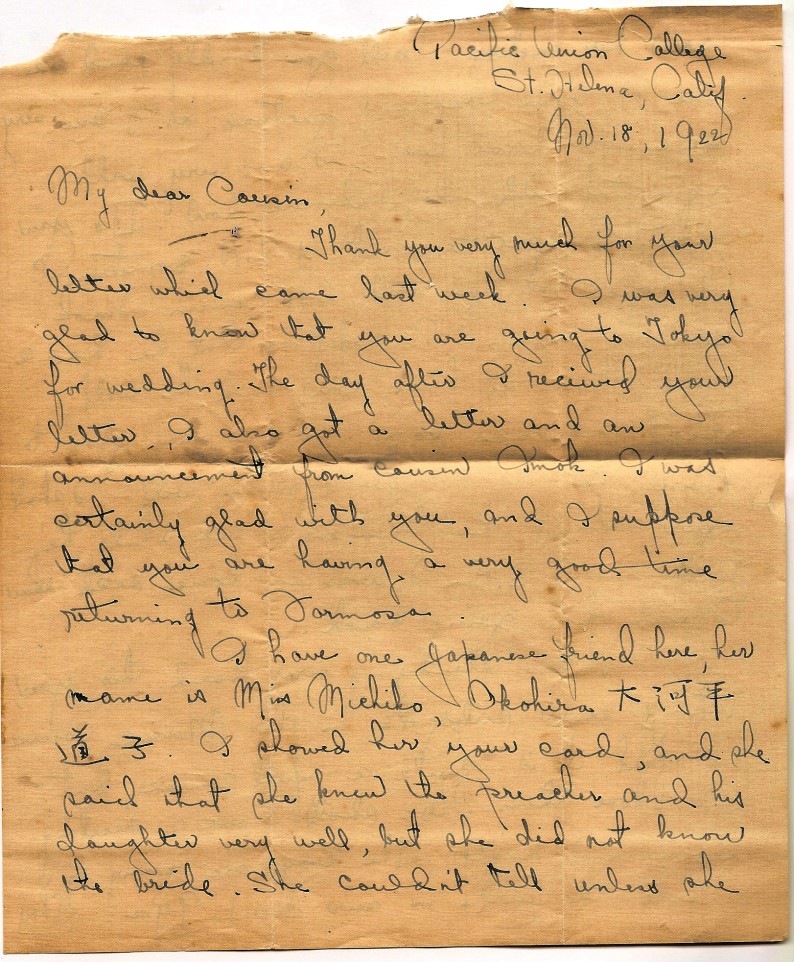 Pacific Union College
St. Helena, Calif.
Nov. 18, 1922
My dear Cousin,
Thank you very much for your
letter which came last week. I was very
glad to know that you are going to Tokyo
for wedding. The day after I received your
letter, I also got a letter and an
announcement from cousin . I was
certainly glad with you, and I suppose
that you are having a very good time
returning to Formosa.
I have one Japanese friend here, her
name is Miss Michiko, Okohira 大河平
道子. I showed her your card, and she
said that she knew the preacher and his
daughter very well, but she did not know
the bride. She couldn't tell unless she